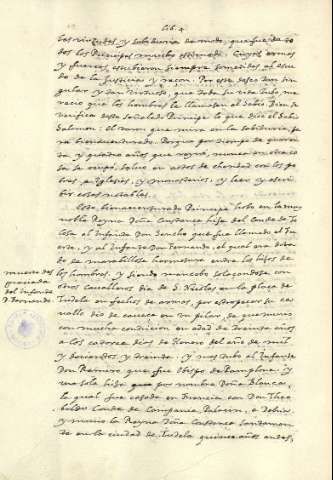 Lib. 2
los virtudes, y sabiduria de modo, que fue de to
dos los Principes mucho estimado. Cuyas armas
y fuerzas, estubieron siempre sometidas al escu
do de la Justicia y raçon. Por este deseo tan sin
gular y tan virtuoso, que toda su vida tubo, me
reció que los hombres le llamasen el Sabio. Bien se
verifica deste señalado Principe lo que dice el Sabio
Salomon. el varon que mora en la sabiduria, se
ra bienaventurado. Porque por tiempo de quaren
ta y quatro años que reynó, nunca en otra co
sa se ocupó, salvo en actos de caridad con los po
bres, e Iglesias, y monasterios, y leer y escri
bir estas notables.
Este bienaventurado Principe hobo en la muy
noble Reyna Doña Constanza hija del Conde de To
losa al Infante Don Sancho que fue llamado el Fu
erte, y al Infante Don Fernando, el qual era dota
do de maravillosa hermosura entre los hijos de
los hombres, y siendo mancebo solazandose con
otros Caualleros dia de S. Nicolas en la plaza de
Tudela en fechos de armas, por estropezar su ca
vallo dio de caveza en un pilar, de que murio
con mucha contricion en edad de treinta años
a los catorce dias de Henero del año de mil
y doscientos y treinta. Y mas tubo al Infante
Don Remiro que fue Obispo de Pamplona, y
una sola hija que por nombre Doña Blanca,
la qual fue casada en Francia con Don Theo
baldo Conde de Campania, Palatin, e Debria,
y murio la Reyna Doña Constanza santamen
te en la ciudad de Tudela quince años antes,
muerte des
graciada
del Infante
D. Fernando.